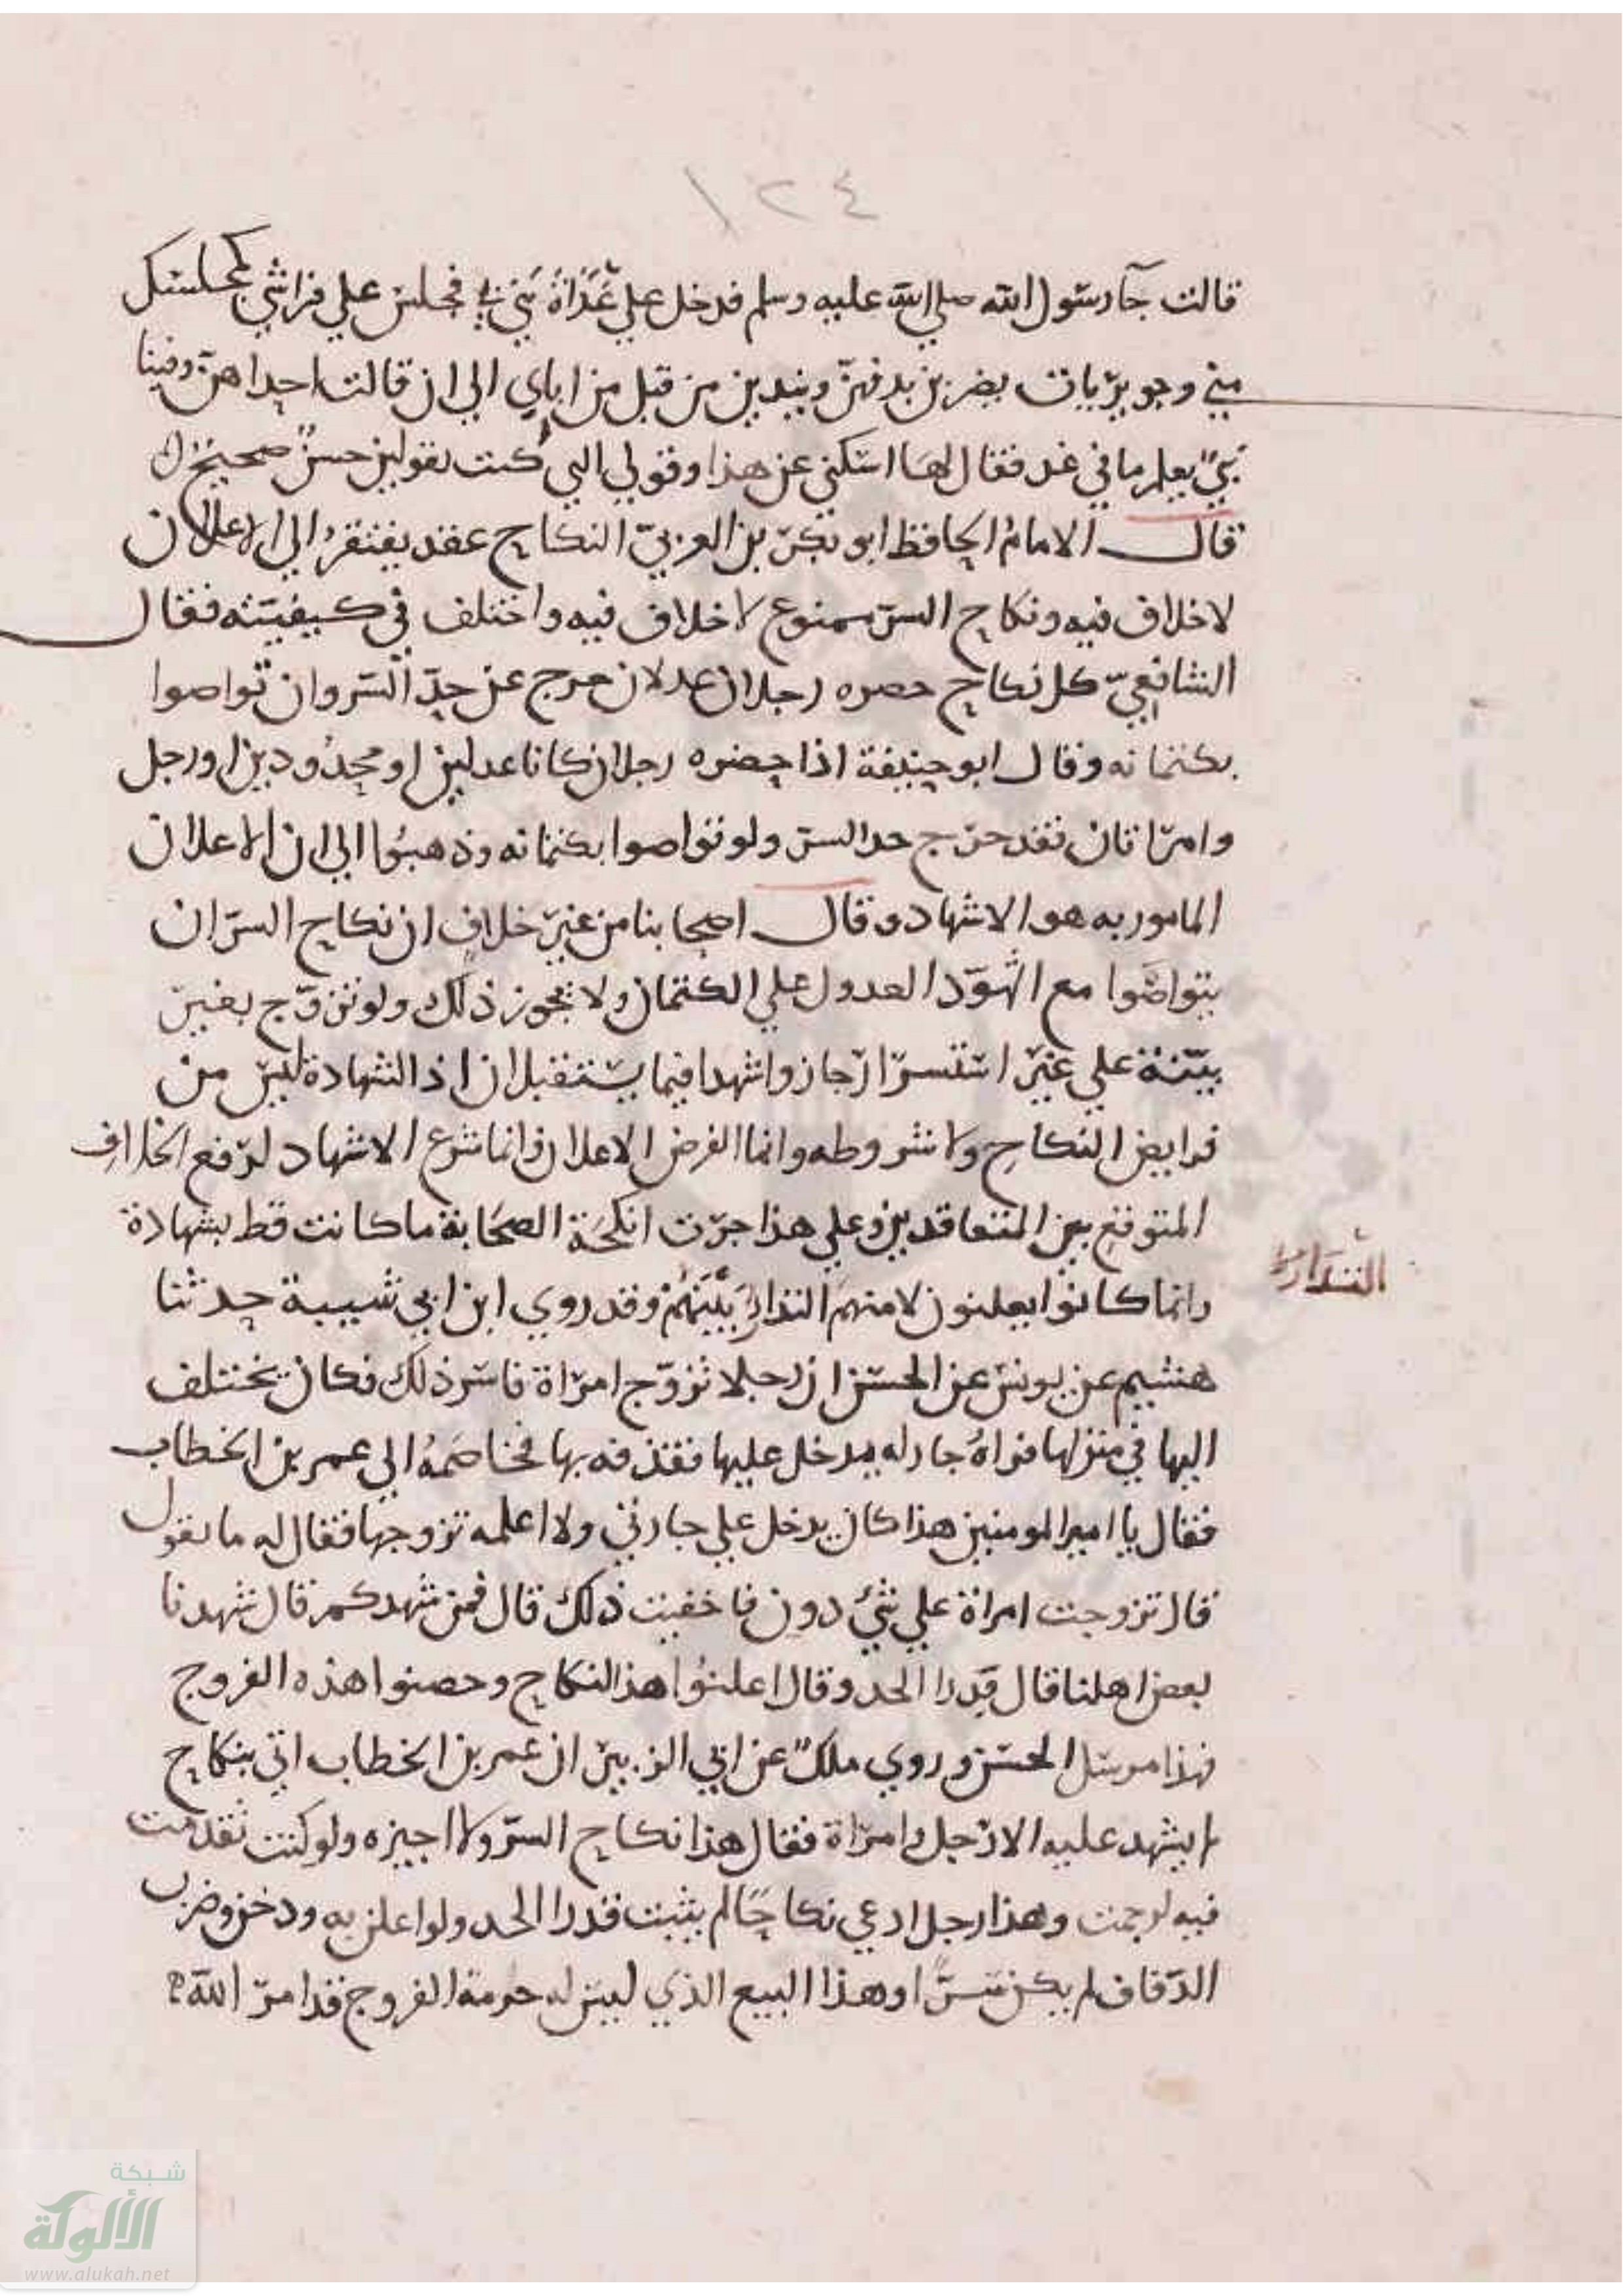 ١٢٤
قالت جآ رسول الله صلي الله عليه وسلم فدخل علي غداة بني بي فجلس علي فراشي كمجلسك
مني وجويريات يضربن بدفهن ويندبن من قبل من اباي الي ان قالت احداهن وفينا
نبي يعلم ما في غد فقال لها اسكتي عن هذا وقولي التي كنت تقولين حسن صحيح
قال الامام الحافظ ابو بكر بن العربي النكاح عقد يفتقر الي الاعلان
لا خلاف فيه ونكاح السر ممنوع لا خلاف فيه واختلف في كيفيته فقال
الشافعي كل نكاح حضره رجلان عدلان خرج عن حد السر وان تواصوا
بكتمانه وقال ابو حنيفة اذا حضره رجلان كانا عدلين او محدودين او رجل
وامراتان فقد خرج حد السر ولو تواصوا بكتمانه وذهبوا الي ان الاعلان
المامور به هو الاشهاد وقال اصحابنا من غير خلاف ان نكاح السر ان
يتواصوا مع الشهود العدول علي الكتمان ولا يجوز ذلك ولو تزوج بغير
بينة علي غير استسرار جاز واشهدا فيما يستقبلان اذ الشهادة ليس من
فرايض النكاح ولا شروطه وانما الفرض الاعلان وانما شرع الاشهاد لرفع الخلاف
المتوقع بين المتعاقدين وعلي هذا جرت انكحة الصحابة ما كانت قط بشهادة
وانما كانوا يعلنون لامنهم التدارء بينهم وقد روي ابن ابي شيبة حدثنا
التدارء
هشيم عن يونس عن الحسن ان رجلا تزوج امراة فاسر ذلك فكان يختلف
اليها في منزلها فراه جار له يدخل عليها فقذفه بها فخاصمه الي عمر بن الخطاب
فقال يا امير المومنين هذا كان يدخل علي جارتي ولا اعلمه تزوجها فقال له ما تقول
قال تزوجت امراة علي شئ دون فاخفيت ذلك قال فمن شهدكم قال شهدنا
بعض اهلنا قال فدرا الحد وقال اعلنوا هذا النكاح وحصنوا هذه الفروج
فهذا مرسل الحسن وروي ملك عن ابي الزبير ان عمر بن الخطاب اتي بنكاح
لم يشهد عليه الا رجل وامراة فقال هذا نكاح السر ولا اجيزه ولو كنت تقدمت
فيه لرجمت وهذا رجل ادعي نكاحا لم يثبت فدرا الحد ولو اعلن به ودخن وضرب
الدفاف لم يكن سرا وهذا البيع الذي ليس له حرمة الفروج قد امر الله
شبكة
الألوكة
www.alukah.net